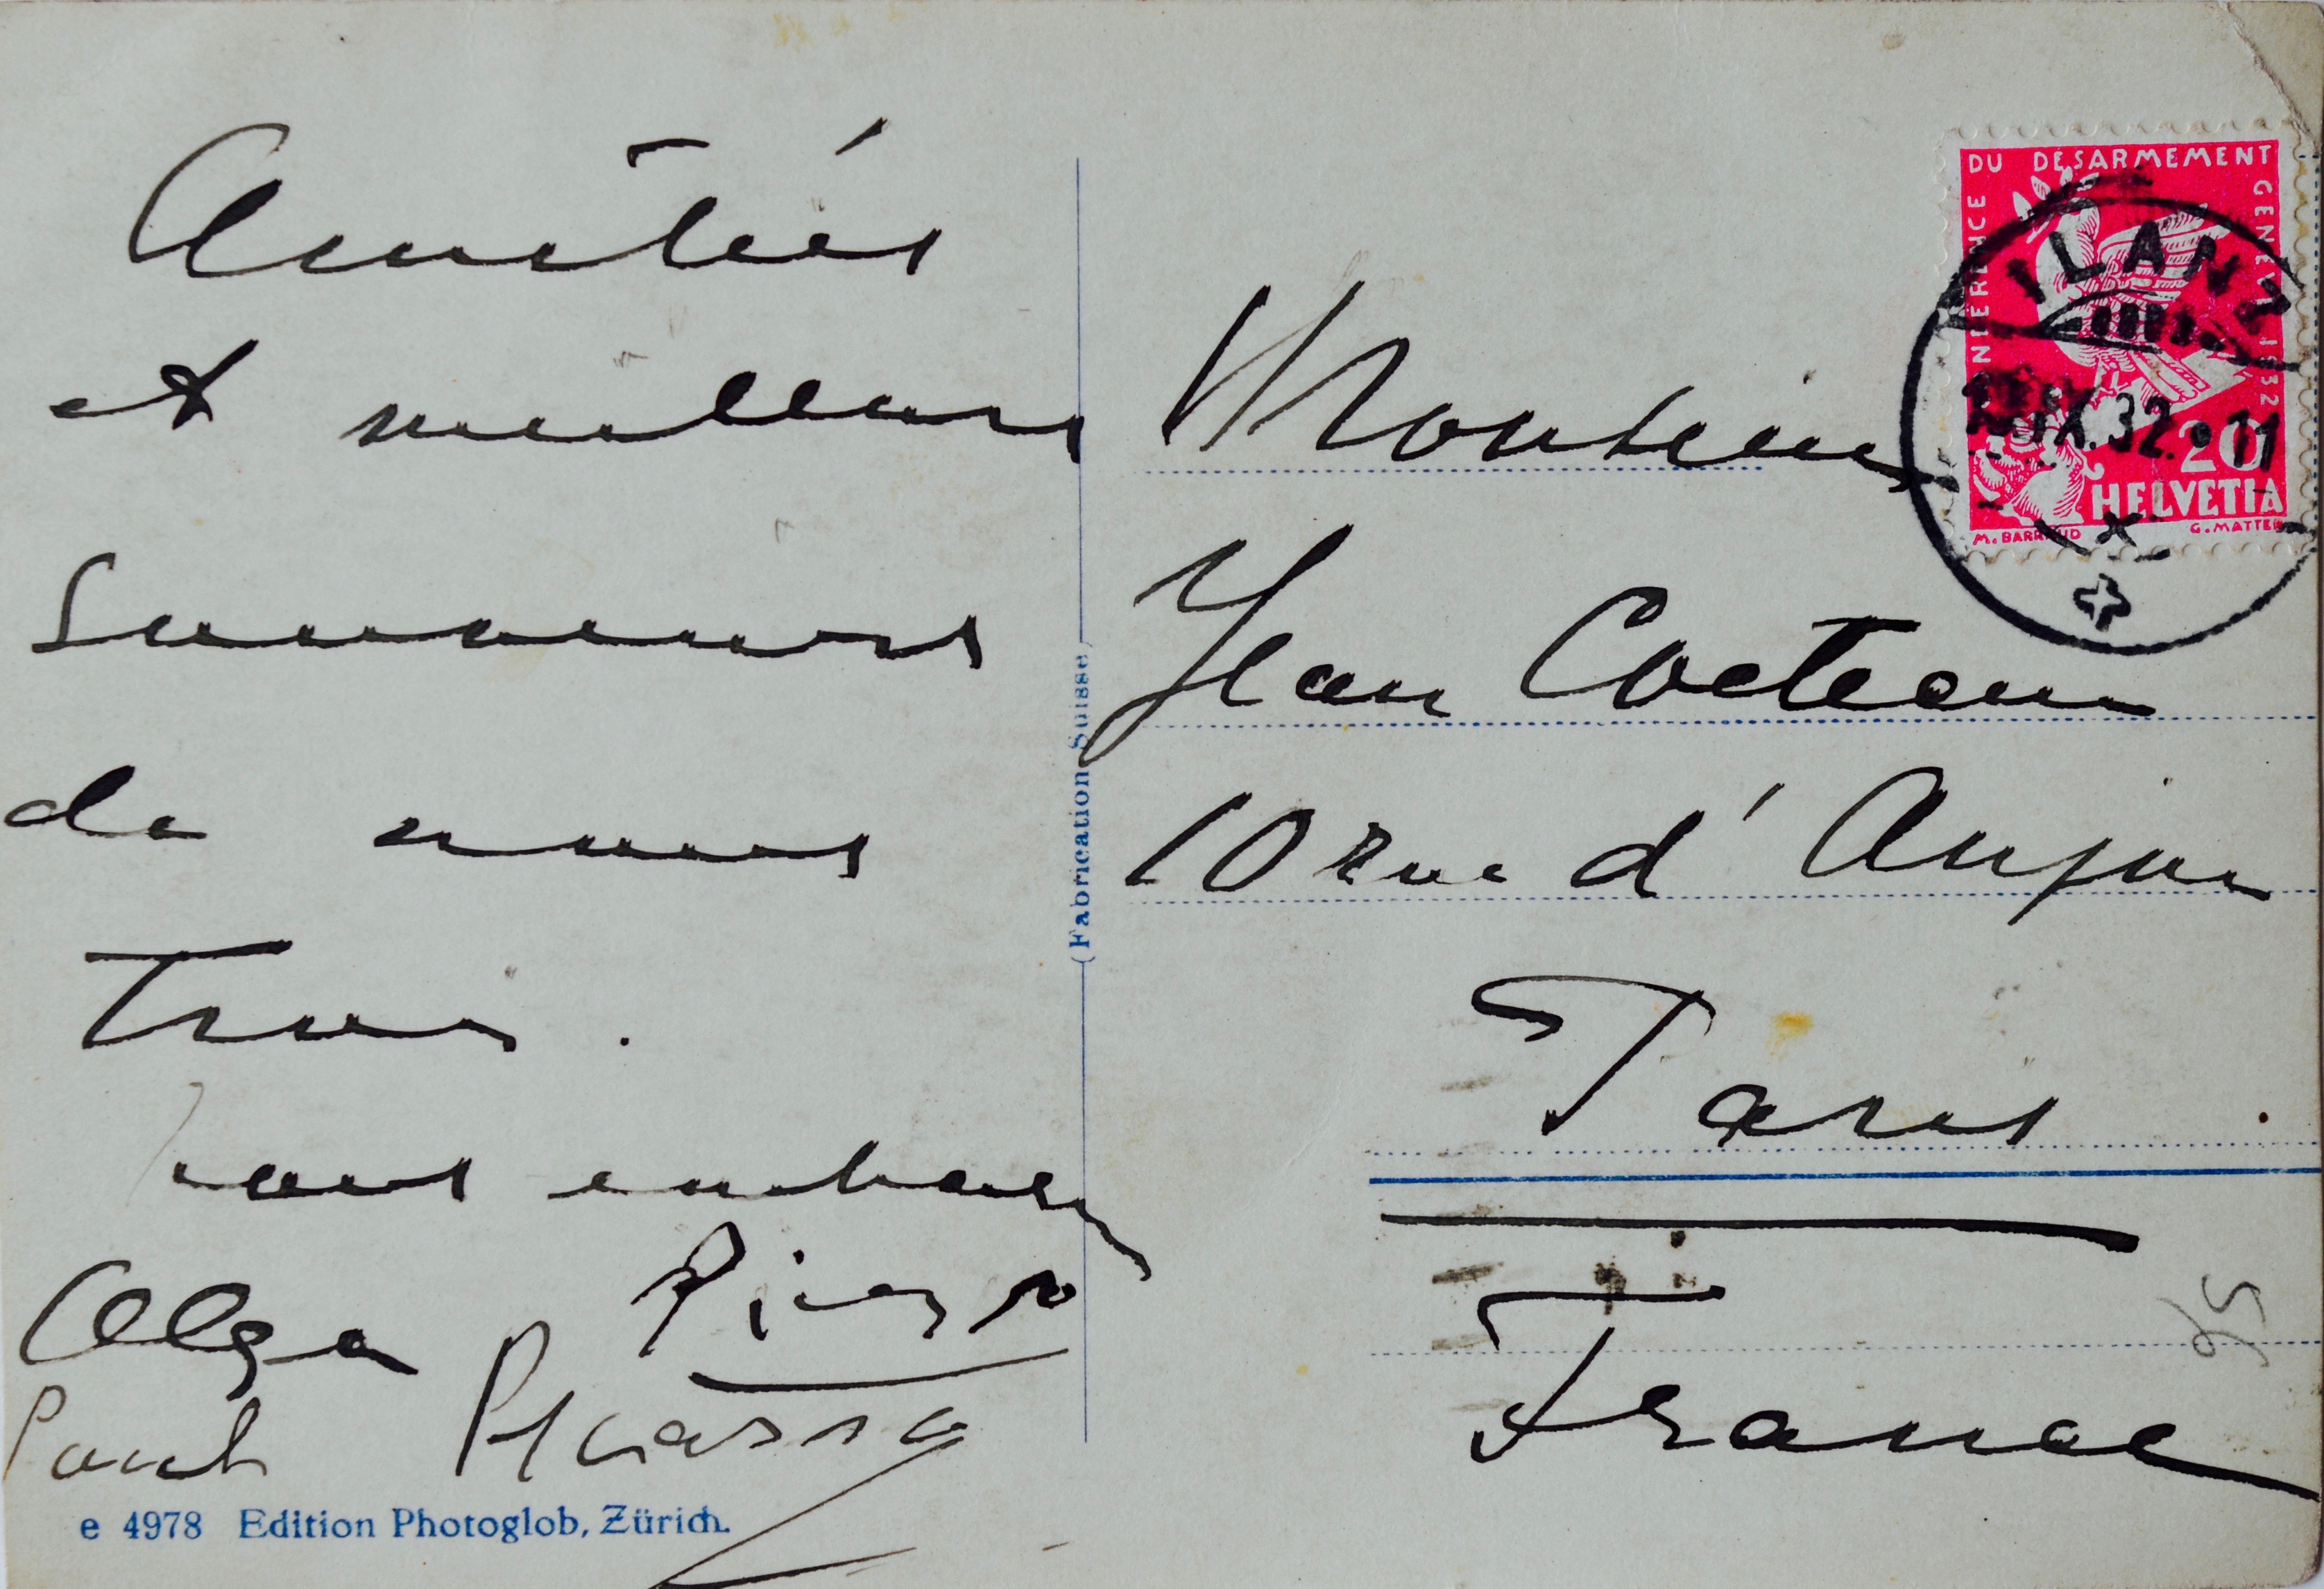 Amitiés
et meilleurs
souvenirs
de nous
trois.
vous embrasse
Olga Picasso
Picasso
e 4978 Edition Photoglob, Zürich.
(Fabrication Suisse)
CONFERENCE DU DESARMEMENT GENEVE 1932
20
HELVETIA
M. BARRAUD G. MATTER
ILANZ
IX.32. 11
Monsieur
Jean Cocteau
10 rue d'Anjou
Paris
France